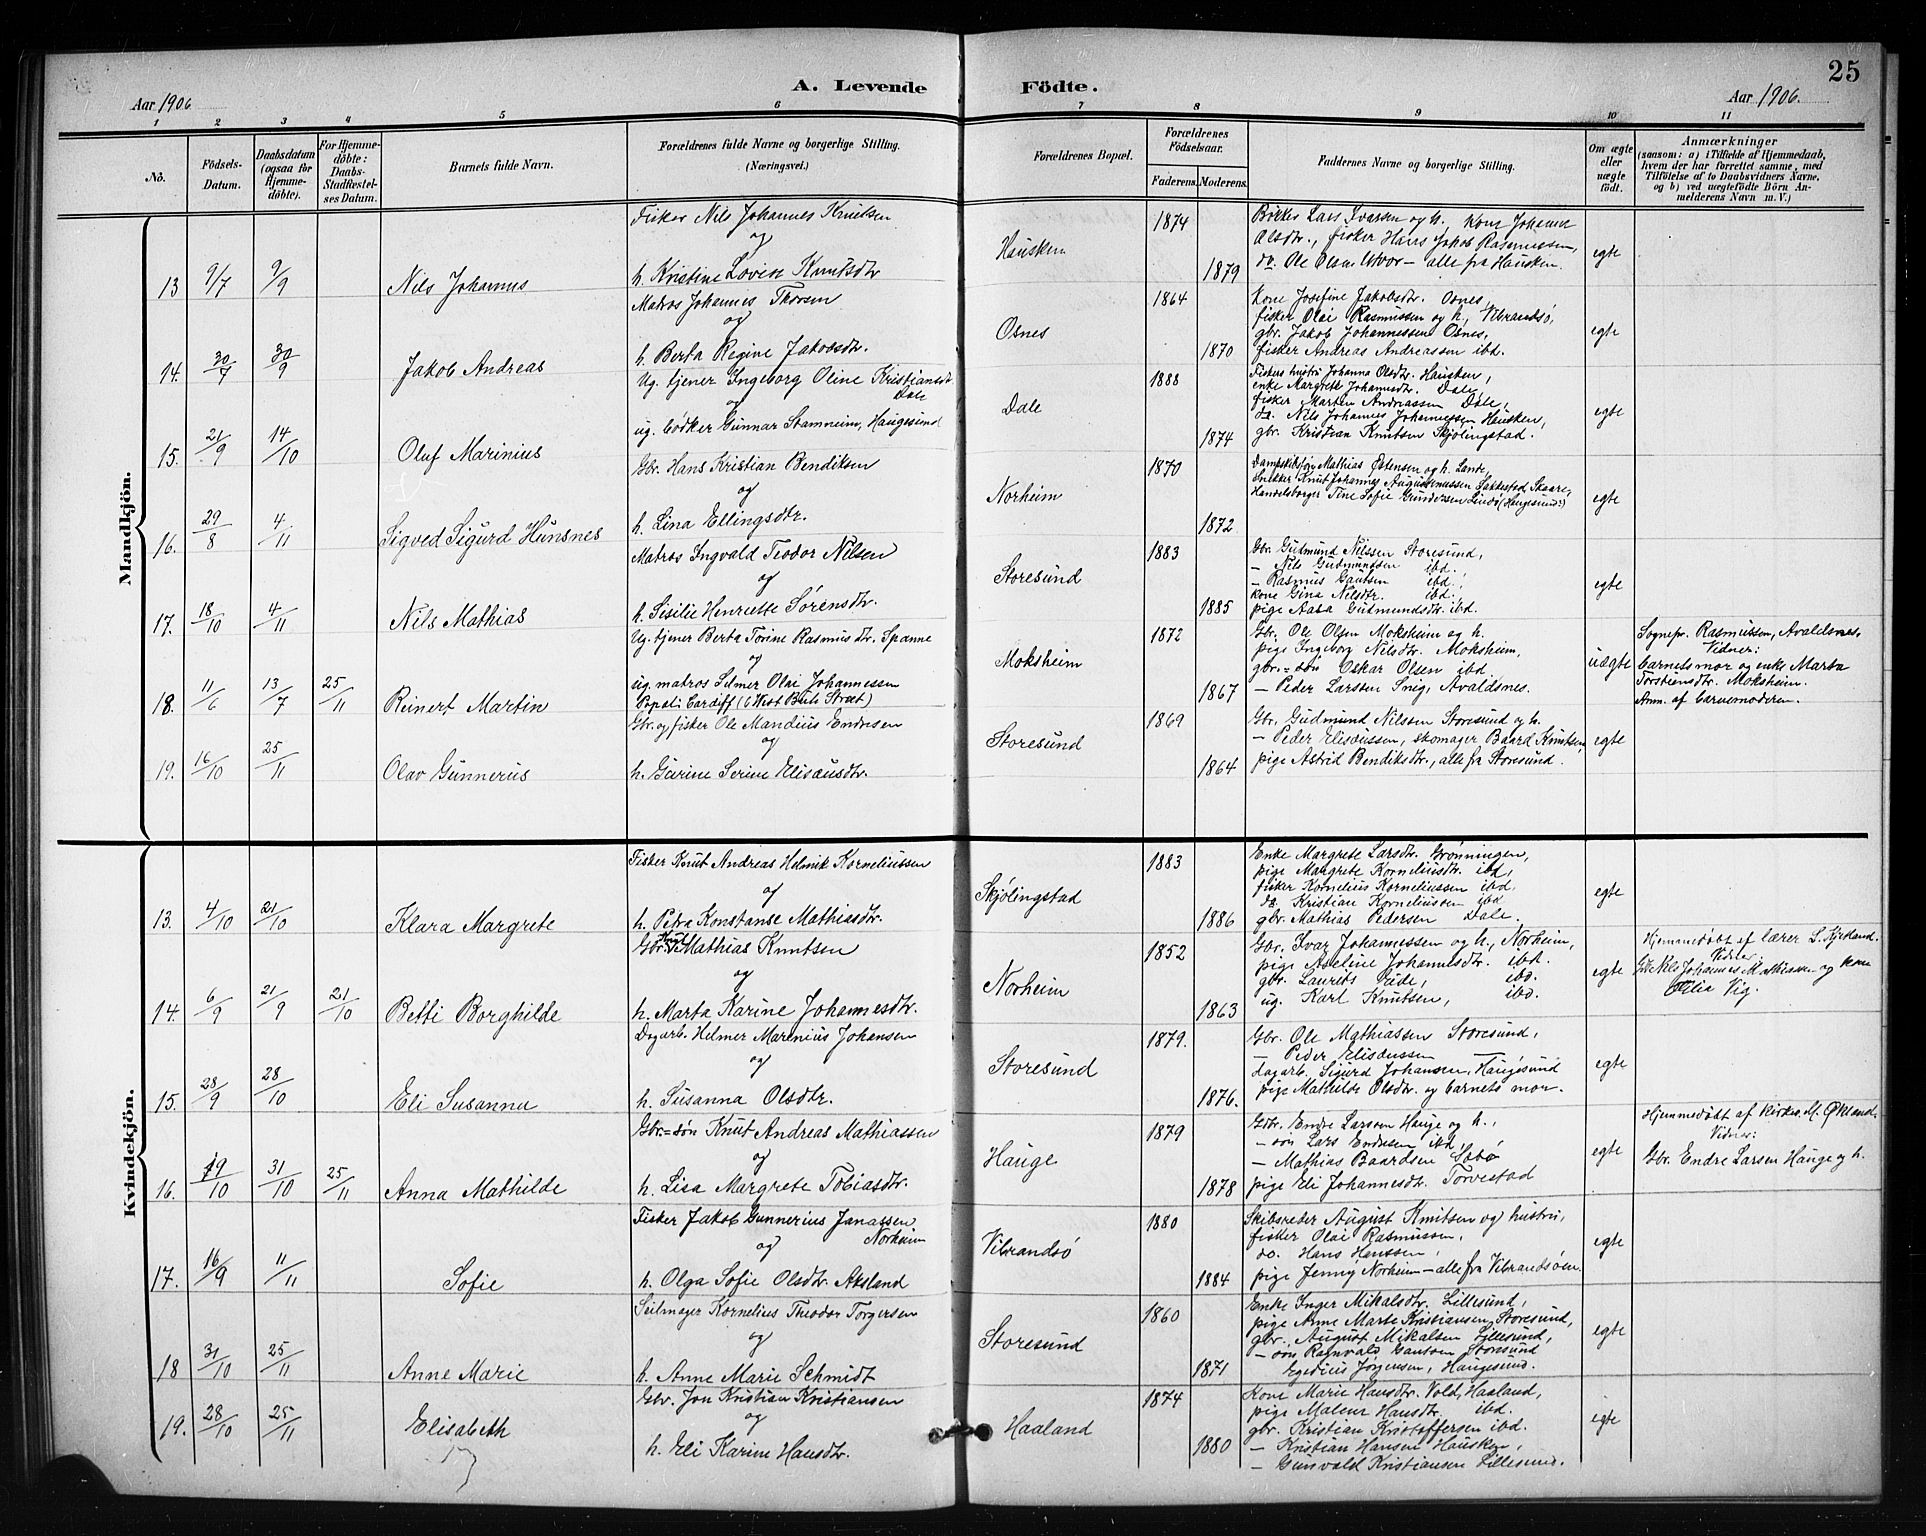 25
A. Levende Födte.
Aar 1906. Aar 1906.
1 2 3 4 5 6 7 8 9 10 11
No.
Födsels-Datum.
Daabsdatum (ogsaa for Hjemme-döbte).
For Hjemme-döbte: Daabs-Stadfæstel-ses Datum.
Barnets fulde Navn.
Forældrenes fulde Navne og borgerlige Stilling.
(Næringsvei.)
Forældrenes Bopæl.
Forældrenes Födselsaar.
Faderens. Moderens.
Faddernes Navne og borgerlige Stilling.
Om ægte eller uægte födt.
Anmærkninger
(saasom: a) i Tilfælde af Hjemmedaab,
hvem der har forrettet samme, med
Tilföielse af to Daabsvidners Navne,
og b) ved uægtefödte Börn An-
melderens Navn m. V.)
Mandkjön.
13 9/7 9/9 Nils Johannes
Fisker Nils Johannes Knutsen
og
h. Kristine Lovise Knutsdtr
Hausken 1874 1879
Bökker Lars Ivarsen og h, Kone Johanne
Olsdtr., fisker Hans Jakob Rasmussen,
do. Ole Olsen Utvor – alle fra Hausken.
egte
14. 30/7 30/9 Jakob Andreas
Matros Johannes Thorsen
og
h. Berta Regine Jakobsdtr.
Osnes 1864 1870
Kone Josefine Jakobsdtr. Osnes,
fisker Olai Rasmussen og h, Vibrandsö,
gbr. Jakob Johannessen Osnes,
fisker Andreas Andreassen ibd.
egte
15. 21/9 14/10 Oluf Marinius
Ug. tjener Ingeborg Oline Kristiansdt.
Dale
og
ug. bödker Gunnar Stamneim, Haugesund
Dale 1888 1874
Fiskers hustru Johanna Olsdtr. Hausken,
enke Margrete Johannesdtr. Dale,
fisker Marten Andreassen Dale,
do. Nils Johannes Johannessen Hausken,
gbr. Kristian Knutsen Skjölingstad.
egte
16. 29/8 4/11 Sigved Sigurd Hunsnes
Gbr. Hans Kristian Bendiksen
og
h. Lina Ellingsdtr.
Norheim 1870 1872
Dampskibsförer Mathias Östensen og h. Lande,
Snekker Knut Johannes Augustinussen Sakkestad, Skaare,
Handelsborger Tine Sofie Gundersen Lindö (Haugesund)
egte
17. 18/10 4/11 Nils Mathias
Matros Ingvald Teodor Nilsen
og
h. Sisilie Henriette Sörensdtr.
Storesund 1883 1885
Gbr. Gudmund Nilssen Storesund,
– Nils Gudmundsen ibd.
– Rasmus Gautsen ibd.,
kone Gina Nilsdtr. ibd.,
pige Aasa Gudmundsdtr. ibd.
egte
18. 11/6 13/7 25/11 Reinert Martin
Ug. tjener Berta Torine Rasmusdtr. Spanne
og
ug. matros Selmer Olai Johannessen
Bopæl: Cardiff (6 West Bute Street)
Moksheim 1872 1867
Gbr. Ole Olsen Moksheim og h.
pige Ingeborg Nilsdtr. Moksheim,
gbr.=sön Oskar Olsen ibd.
– Peder Larsen Snig, Avaldsnes.
uægte
Sognepr. Rasmussen, Avaldsnes.
Vidner:
barnets mor og enke Marta
Torstensdtr. Moksheim.
Anm. af barnemoderen.
19. 16/10 25/11 Olav Gunnerus
Gbr. og fisker Ole Mandius Endresen
og
h. Gurine Serine Elisæusdtr.
Storesund 1869 1864
Gbr. Gudmund Nilssen Storesund og h.
– Peder Elisæussen, skomager Baard Knutsen,
pige Astrid Bendiksdtr, alle fra Storesund.
egte
Kvindekjön.
13. 4/10 21/10 Klara Margrete
Fisker Knut Andreas Helmik Korneliussen
og
h. Petra Konstanse Mathiasdtr.
Skjölingstad 1883 1886
Enke Margrete Larsdtr. Grönningen,
pige Margrete Korneliusdtr. ibd,
fisker Kornelius Korneliussen ibd.
do. Kristian Korneliussen ibd
gbr. Mathias Pedersen Dale.
egte
14. 6/9 21/9 21/10 Betti Borghilde
Gbr. Mathias Knutsen
og
h. Marta Karine Johannesdtr.
Norheim 1852 1863
Gbr. Ivar Johannessen og h., Norheim,
pige Aseline Johannesdtr. ibd.
gbr. Laurits Eide, ibd.
ug. Karl Knutsen, ibd.
egte
Hjemmedöbt af lærer S. Kjetland.
Vidner
Gbr Nils Johannes Mathiassen og kone
Otilia Vig.
15. 28/9 28/10 Eli Susanna
Dagarb. Helmer Marinius Johansen
og
h. Susanna Olsdtr.
Storesund 1879. 1876.
Gbr. Ole Mathiassen Storesund,
– Peder Elisæussen
dagarb. Sigurd Johansen, Haugesund
pige Mathilde Olsdtr. og barnets mor.
egte
16. 19/10 31/10 25/11 Anna Mathilde
Gbr.=sön Knut Andreas Mathiassen
og
h. Lisa Margrete Tobiasdtr.
Hauge 1879 1878
Gbr. Endre Larsen Hauge og h.,
– sön Lars Endresen ibd,
– Mathias Baardsen Sæbö
pige Eli Johannesdtr. Torvestad
egte
Hjemmedöbt af kirkes. M. Økland.
Vidner:
Gbr. Endre Larsen Hauge og h.
17. 16/9 11/11 Sofie
Fisker Jakob Gunnerius Janassen
Norheim
og
h. Olga Sofie Olsdtr. Aksland
Vibrandsö 1880 1884
Skibsreder August Knutsen og hustru,
fisker Olai Rasmussen,
do. Hans Hanssen,
pige Jenny Norheim – alle fra Vibrandsöen.
egte
18 31/10 25/11 Anne Marie
Seilmager Kornelius Theodor Torgersen
og
h. Anne Marie Schmidt
Storesund 1860 1871
Enke Inger Mikalsdtr. Lillesund,
pige Anne Marte Kristiansen, Storesund,
gbr. August Mikalsen Lillesund,
– sön Ragnvald Gautsen Storesund
Egidius Jörgensen, Haugesund.
egte
19. 28/10 25/11 Elisabeth
Gbr. Jon Kristian Kristiansen
og
h. Eli Karine Hansdtr.
Haaland 1874 1880
Kone Marie Hansdtr. Vold, Haaland,
pige Malene Hansdtr. ibd.
gbr. Kristian Kristoffersen ibd.
– Kristian Hansen Hausken,
– Gunvald Kristiansen Lillesund.
egte